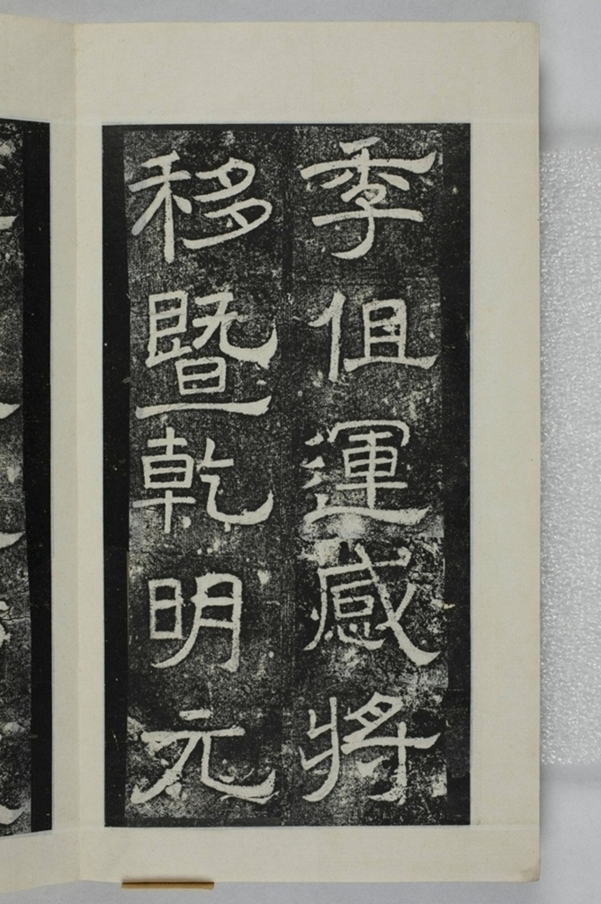 季徂運感將
移暨乾明元